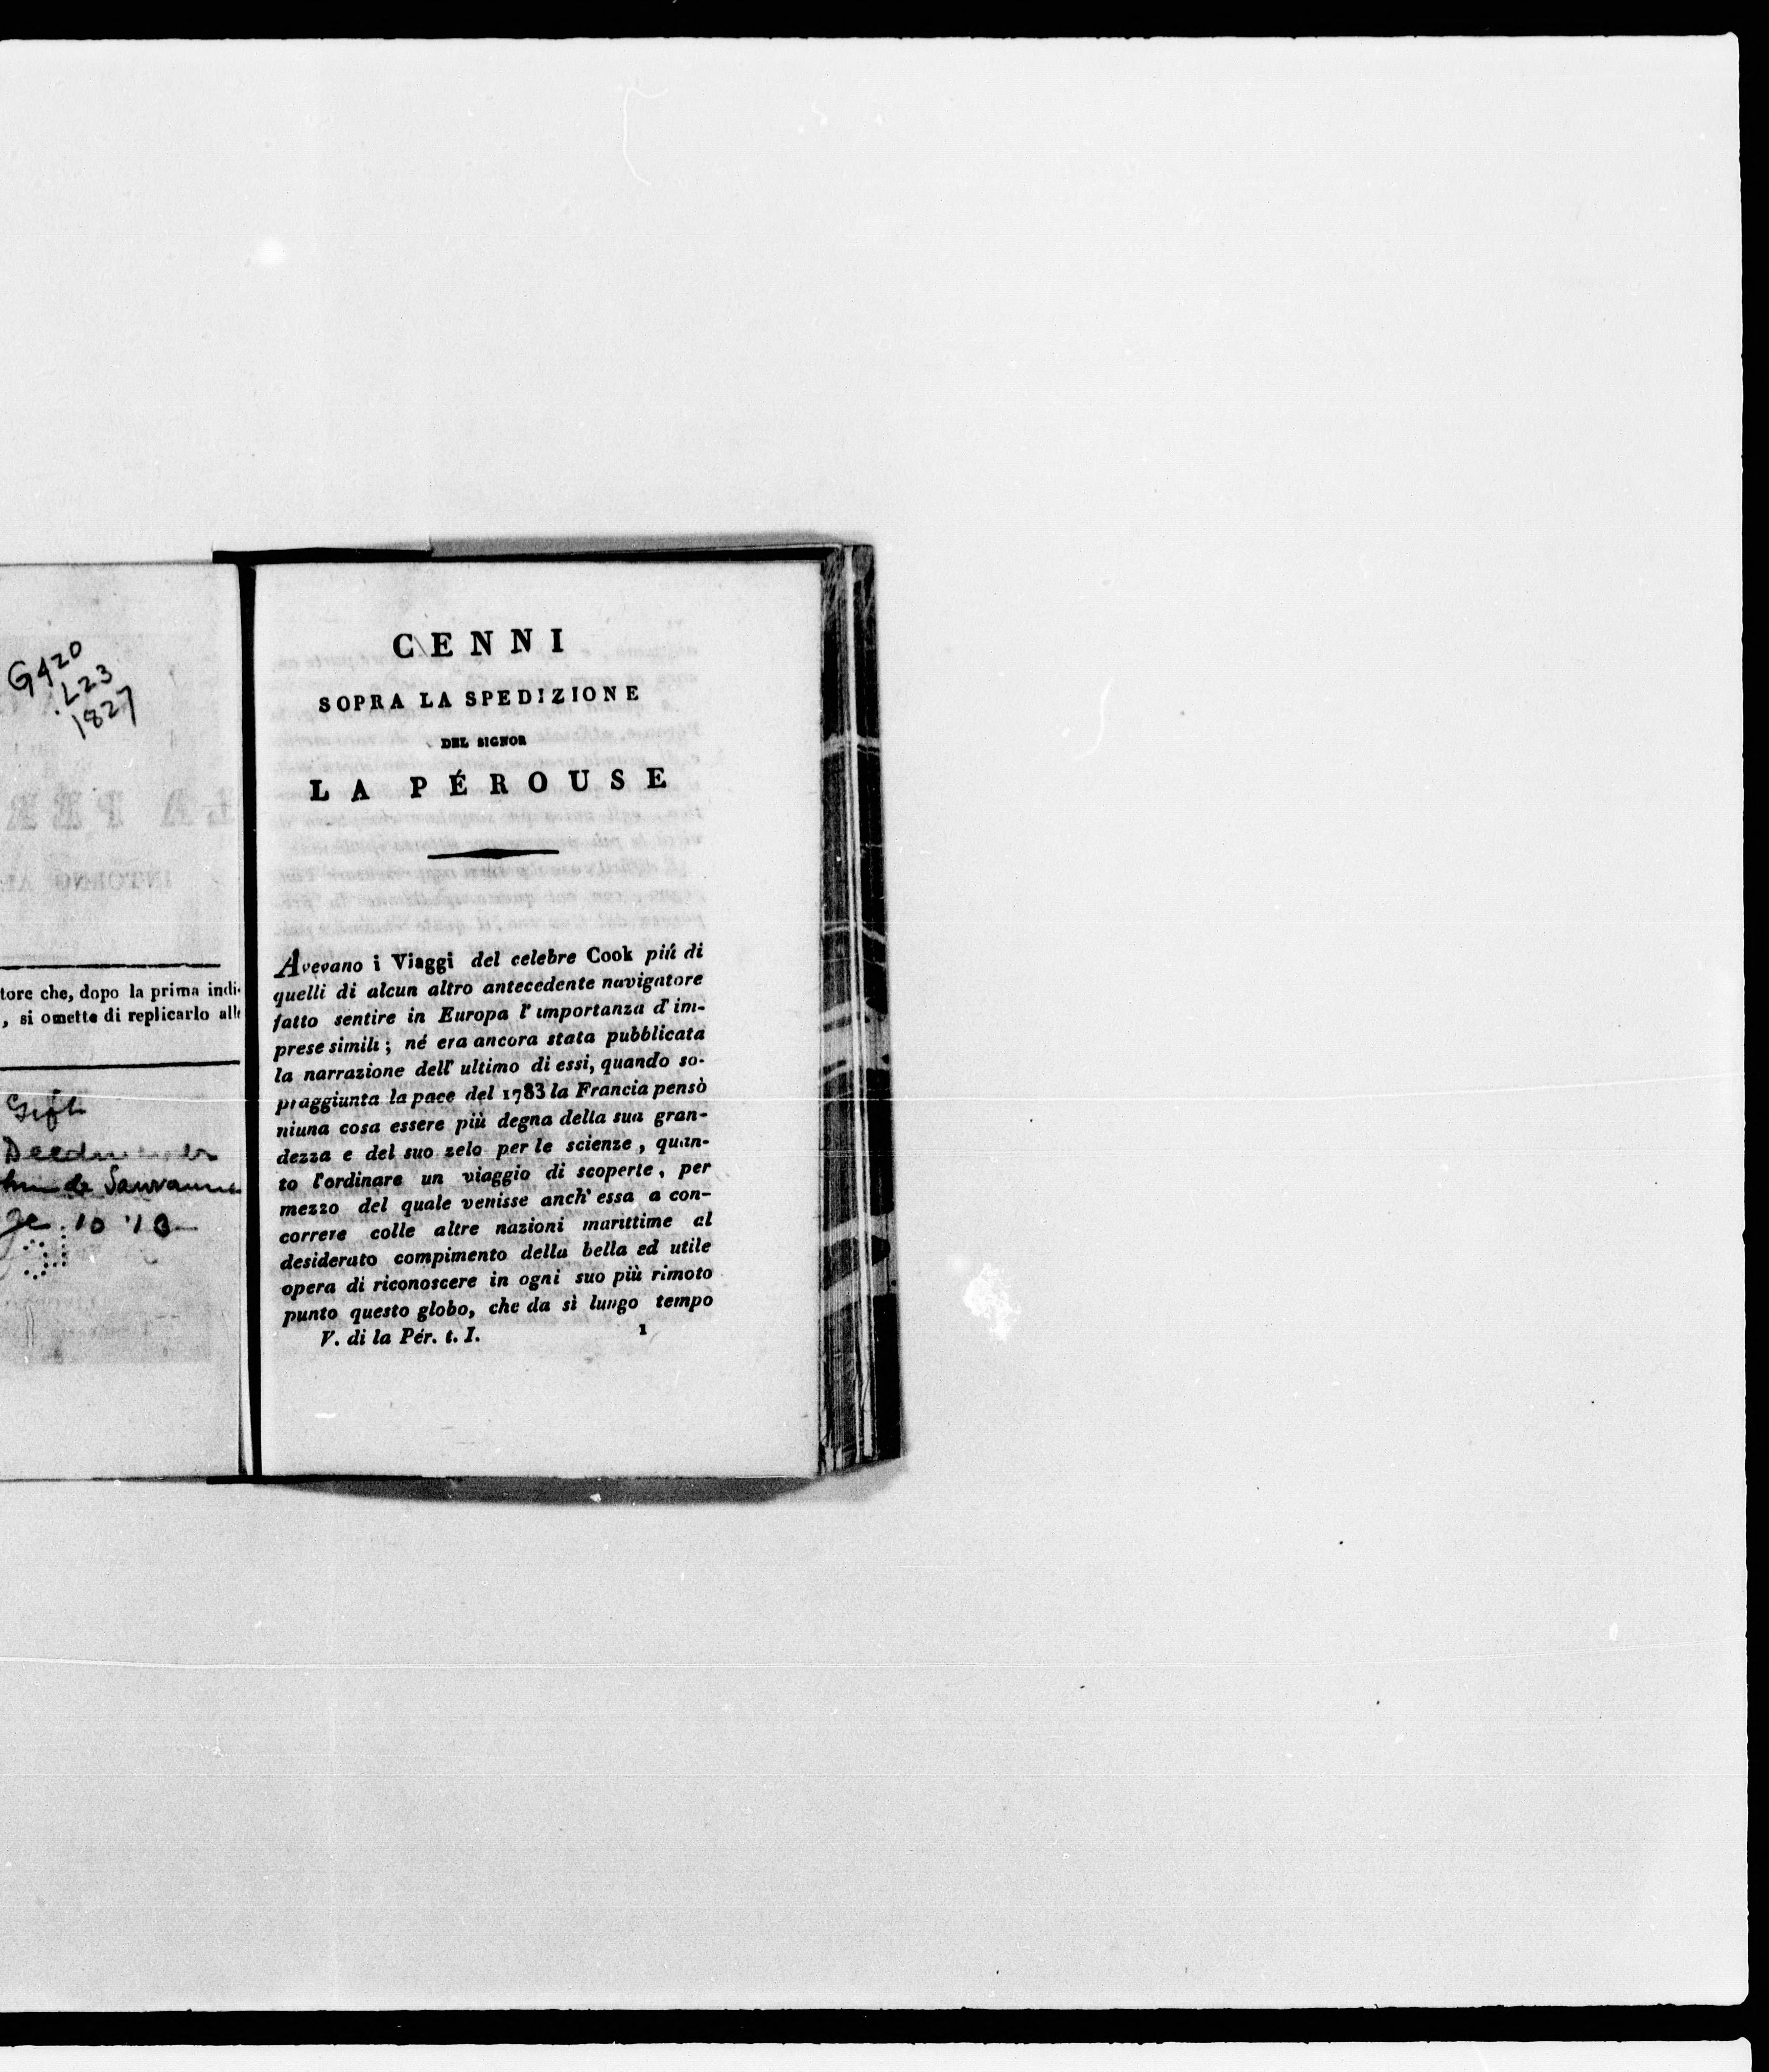 G420
.L23
1827
tore che, dopo la prima indi-
, si omette di replicarlo alle
Gift
10 '10
CENNI
SOPRA LA SPEDIZIONE
DEL SIGNOR
LA PÉROUSE
Avevano i Viaggi del celebre Cook più di
quelli di alcun altro antecedente navigatore
fatto sentire in Europa l'importanza d'im-
prese simili; né era ancora stata pubblicata
la narrazione dell' ultimo di essi, quando so-
praggiunta la pace del 1783 la Francia pensò
niuna cosa essere più degna della sua gran-
dezza e del suo zelo per le scienze, quan-
to l'ordinare un viaggio di scoperte, per
mezzo del quale venisse anch' essa a con-
correre colle altre nazioni marittime al
desiderato compimento della bella ed utile
opera di riconoscere in ogni suo più rimoto
punto questo globo, che da sì lungo tempo
V. di la Pér. t. I. 1